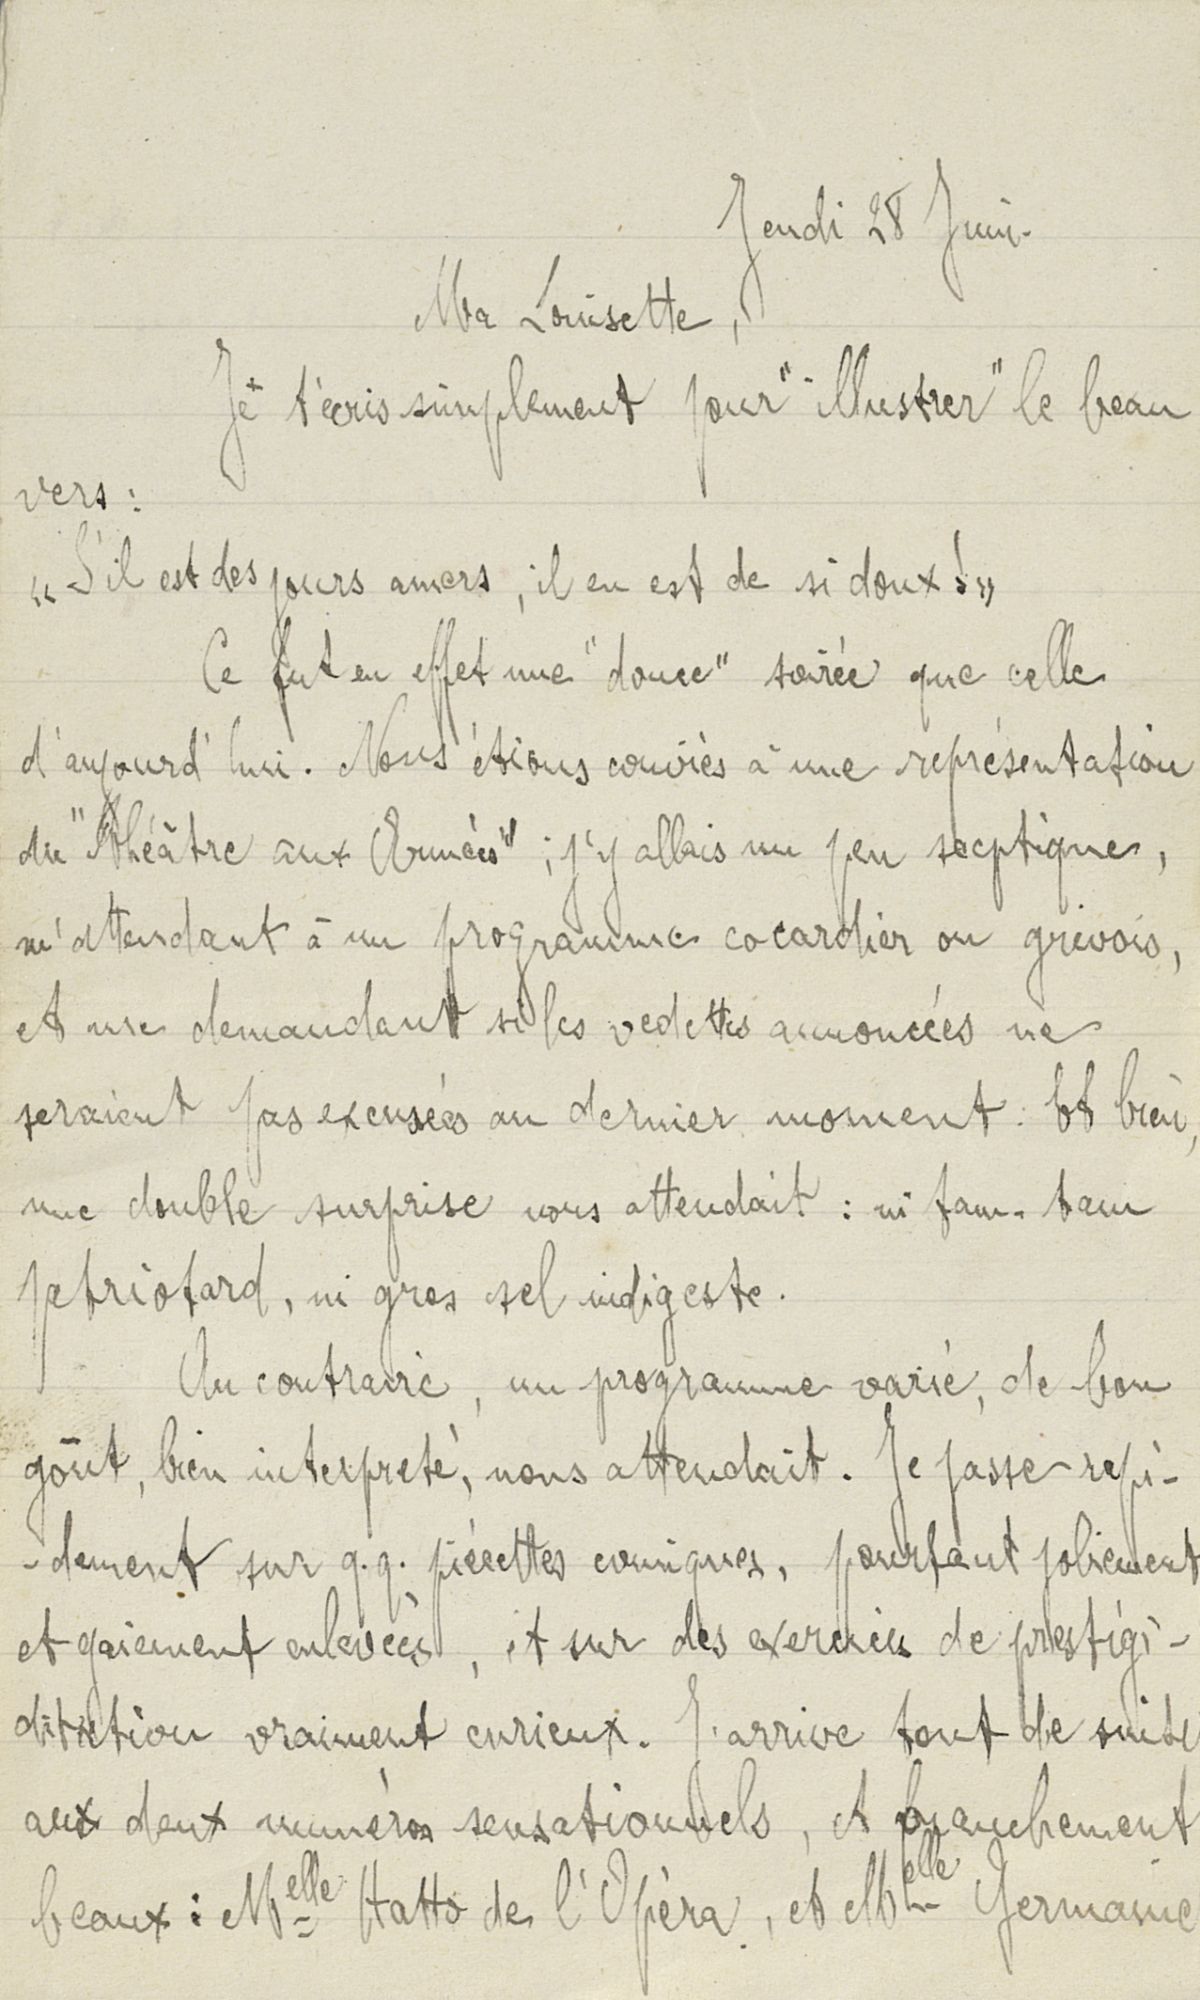 Jeudi 28 Juin.
Ma Louisette,
Je t'écris simplement pour "illustrer" le beau
vers :
« S'il est des jours amers, il en est de si doux ! »
Ce fut en effet une "douce" soirée que celle
d'aujourd'hui. Nous étions conviés à une représentation
du "Théâtre aux Armées" ; j'y allais un peu sceptique,
m'attendant à un programme cocardier ou grivois,
et me demandant si les vedettes annoncées ne
seraient pas excusées au dernier moment. Et bien,
une double surprise nous attendait : ni tam-tam
patriotard, ni gros sel indigeste.
Au contraire, un programme varié, de bon
goût, bien interprété, nous attendait. Je passe rapi-
-dement sur q.q. piécettes comiques, pourtant joliement
et gaiement enlevées, et sur des exercices de prestigi-
ditation vraiment curieux. J'arrive tout de suite
aux deux numéros sensationnels, et franchement
beaux : Melle Hatto de l'Opéra, et Melle Germaine